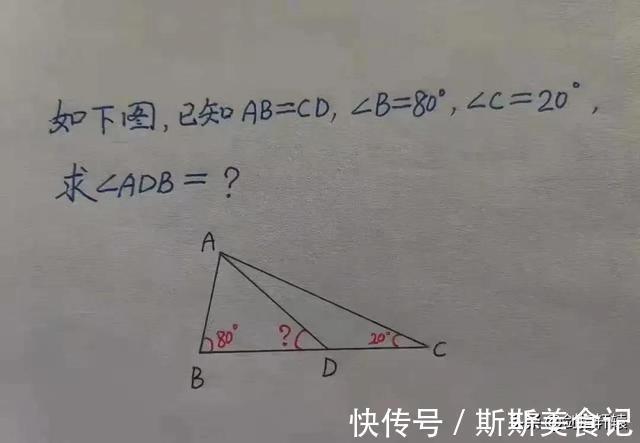 如下图,已知AB=CD,∠B=80°,∠C=20°,
求∠ADB=?
A
80°
?
20°
B
D
C
快传号 / 斯斯美食记